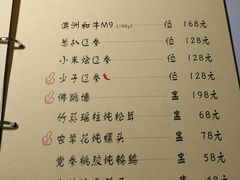 澳洲和牛M9 (100g) 位 168元
葱扒辽参 位 128元
小米烩辽参 位 128元
尖子辽参 位 128元
佛跳墙 盅 198元
竹荪瑶柱炖松茸 盅 68元
虫草花炖螺头 盅 78元
党参桃胶炖鹌鹑 盅 58元
48元